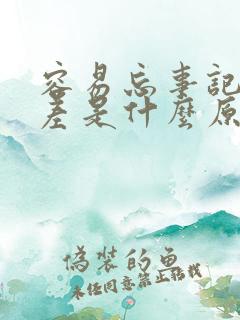 容易忘事記
差是什麼原
偽裝的魚
未任同意禁止轉載